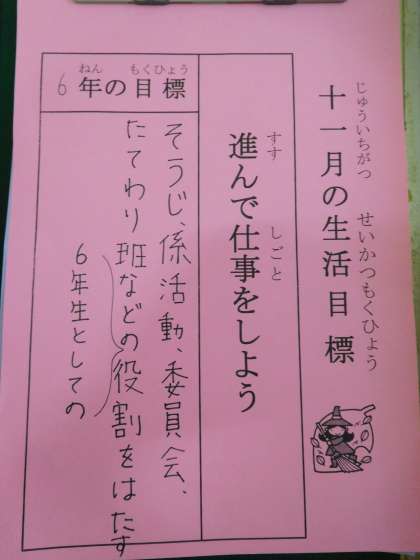 十一月の生活目標
じゅういちがつ せいかつもくひょう
進んで仕事をしよう
すす しごと
6年の目標
ねん もくひょう
そうじ、係活動、委員会、
たてわり班などの役割をはたす
6年生としての